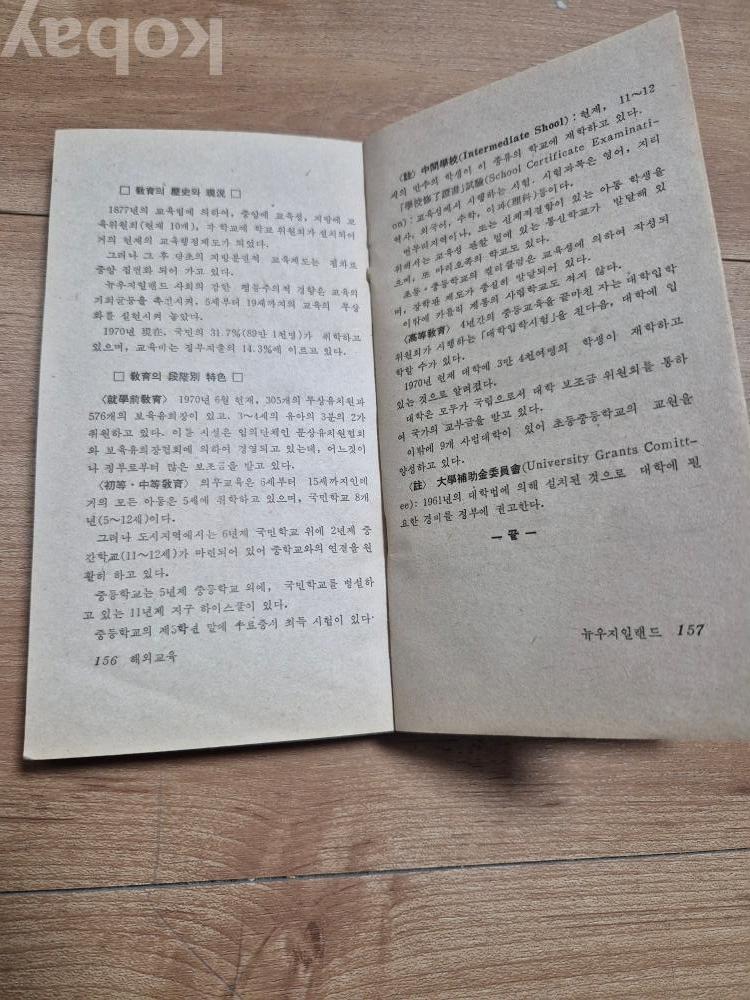 kobay
□ 敎育의 歷史와 現況 □
1877년의 교육법에 의하여, 중앙에 교육성, 지방에 교
육위원회(현재 10개), 각 학교에 학교 위원회가 설치되어
거의 현재의 교육행정제도가 되었다.
그러나 그 후 당초의 지방분권적 교육제도는 점차로
중앙 집권화 되어 가고 있다.
뉴우지일랜드 사회의 강한 평등주의적 경향은 교육의
기회균등을 촉진시켜, 5세부터 19세까지의 교육의 무상
화를 실현시켜 놓았다.
1970년 現在, 국민의 31.7%(89만 1천명)가 취학하고
있으며, 교육비는 정부지출의 14.3%에 이르고 있다.
□ 敎育의 段階別 特色 □
〈就學前敎育〉 1970년 6월 현재, 305개의 무상유치원과
576개의 보육유희장이 있고, 3~4세의 유아의 3분의 2가
취원하고 있다. 이들 시설은 임의단체인 무상유치원협회
와 보육유희장협회에 의하여 경영되고 있는데, 어느것이
나 정부로부터 많은 보조금을 받고 있다.
〈初等・中等敎育〉 의무교육은 6세부터 15세까지인데
거의 모든 아동은 5세에 취학하고 있으며, 국민학교 8개
년(5~12세)이다.
그러나 도시지역에서는 6년제 국민학교 위에 2년제 중
간학교(11~12세)가 마련되어 있어 중학교와의 연결을 원
활히 하고 있다.
중등학교는 5년제 중등학교 외에, 국민학교를 병설하
고 있는 11년제 지구 하이스쿨이 있다.
중등학교의 제3학년 말에 수료증서 취득 시험이 있다
156 해외교육
〈註〉 中間學校(Intermediate Shool) : 현재, 11~12
세의 반수의 학생이 이 종류의 학교에 재학하고 있다.
「學校修了證書」試驗(School Certificate Examinati-
on) : 교육성에서 시행하는 시험. 시험과목은 영어, 지리
역사, 외국어, 수학, 이과(理科)등이다.
벽두리지역이나, 또는 신체적결함이 있는 아동 학생을
위해서는 교육성 관할 밑에 있는 통신학교가 발달해 있
으며, 또 마리오족의 학교도 있다.
초등・중등학교의 컬리큘럼은 교육성에 의하여 작성되
며, 장학관 제도가 충실히 발달되어 있다.
이밖에 카톨릭 계통의 사립학교도 적지 않다.
〈高等敎育〉 4년간의 중등교육을 끝마친 자는 대학입학
위원회가 시행하는 「대학입학시험」을 친다음, 대학에 입
학할 수가 있다.
1970년 현재 대학에 3만 4천여명의 학생이 재학하고
있는 것으로 알려졌다.
대학은 모두가 국립으로서 대학 보조금 위원회를 통하
여 국가의 교부금을 받고 있다.
이밖에 9개 사범대학이 있어 초등중등학교의 교원을
양성하고 있다.
〈註〉 大學補助金委員會(University Grants Comitt-
ee): 1961년의 대학법에 의해 설치된 것으로 대학에 필
요한 경비를 정부에 권고한다.
— 끝 —
뉴우지일랜드 157